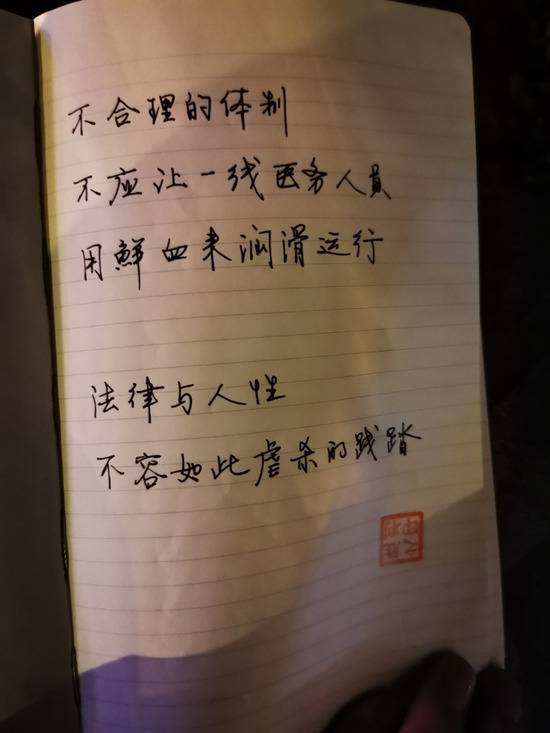 不合理的体制
不应让一线医务人員
用鮮血来润滑运行
法律与人性
不容如此虐杀的践踏